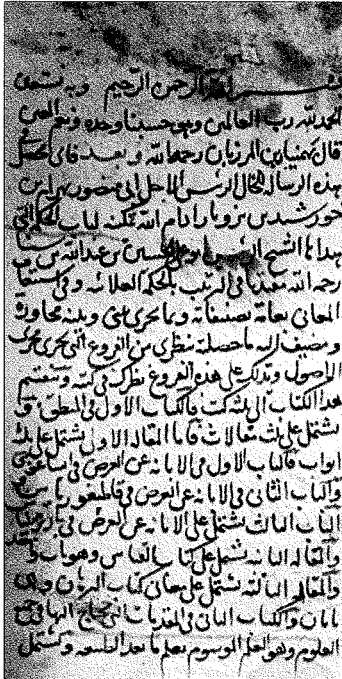 بسم الله الرحمن الرحيم وبه نستعين
الحمد لله رب العالمين وهو حسبنا وحده ونعم المعين
قال بهمنيار بن المرزبان رحمه الله وبعد فانى محصل
هذه الرسالة للخال الرئيس الاجل ابى منصور بهرام بن
خورشيد بن يزديار ادام الله تمكنه لباب الحكم التى
هذبها الشيخ الرئيس ابو على الحسين بن عبد الله بن سينا
رحمه الله مقتديا فى الترتيب بالحكمة العلائية وفى استيفاء
المعانى بعامة تصنيفاته وبما جرى بينى وبينه محاورة
ومضيف اليه ما حصلته بنظرى من الفروع التى تجرى مجرى
الاصول ويدلك على هذه الفروع نظرك فى كتبه وينقسم
هذا الكتاب الى ثلثة كتب فالكتاب الاول فى المنطق وهو
يشتمل على ثلث مقالات فالمقالة الاولى تشتمل على ثلثة
ابواب فالباب الاول فى الابانة عن الغرض فى ايساغوجى
والباب الثانى فى الابانة عن الغرض فى قاطيغورياس
الباب الثالث يشتمل على الابانة عن الغرض فى
والمقالة الثانية تشتمل على كتاب القياس وهو باب
والمقالة الثالثة تشتمل على معانى كتاب البرهان وهى
بابان والكتاب الثانى فى المقدمات التى يحتاج اليها فى جميع
العلوم وهو العلم الموسوم بعلم ما بعد الطبيعة ويشتمل